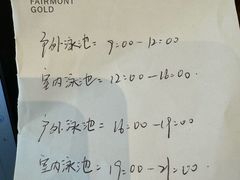 FAIRMONT
GOLD
户外泳池=9:00-12:00
室内泳池=12:00-16:00.
户外泳池=16:00-19:00
室内泳池=19:00-21:00.